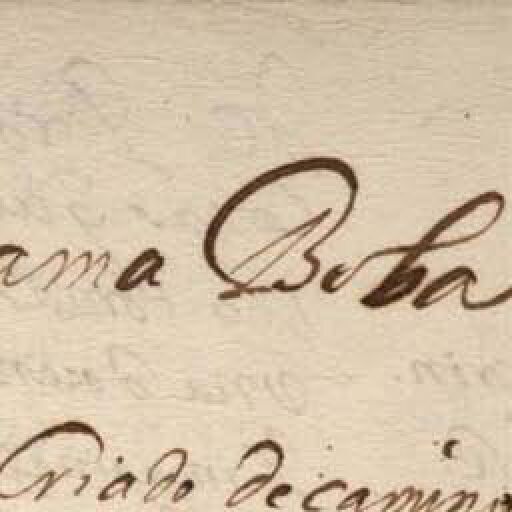 ama Boba
Criado de camino